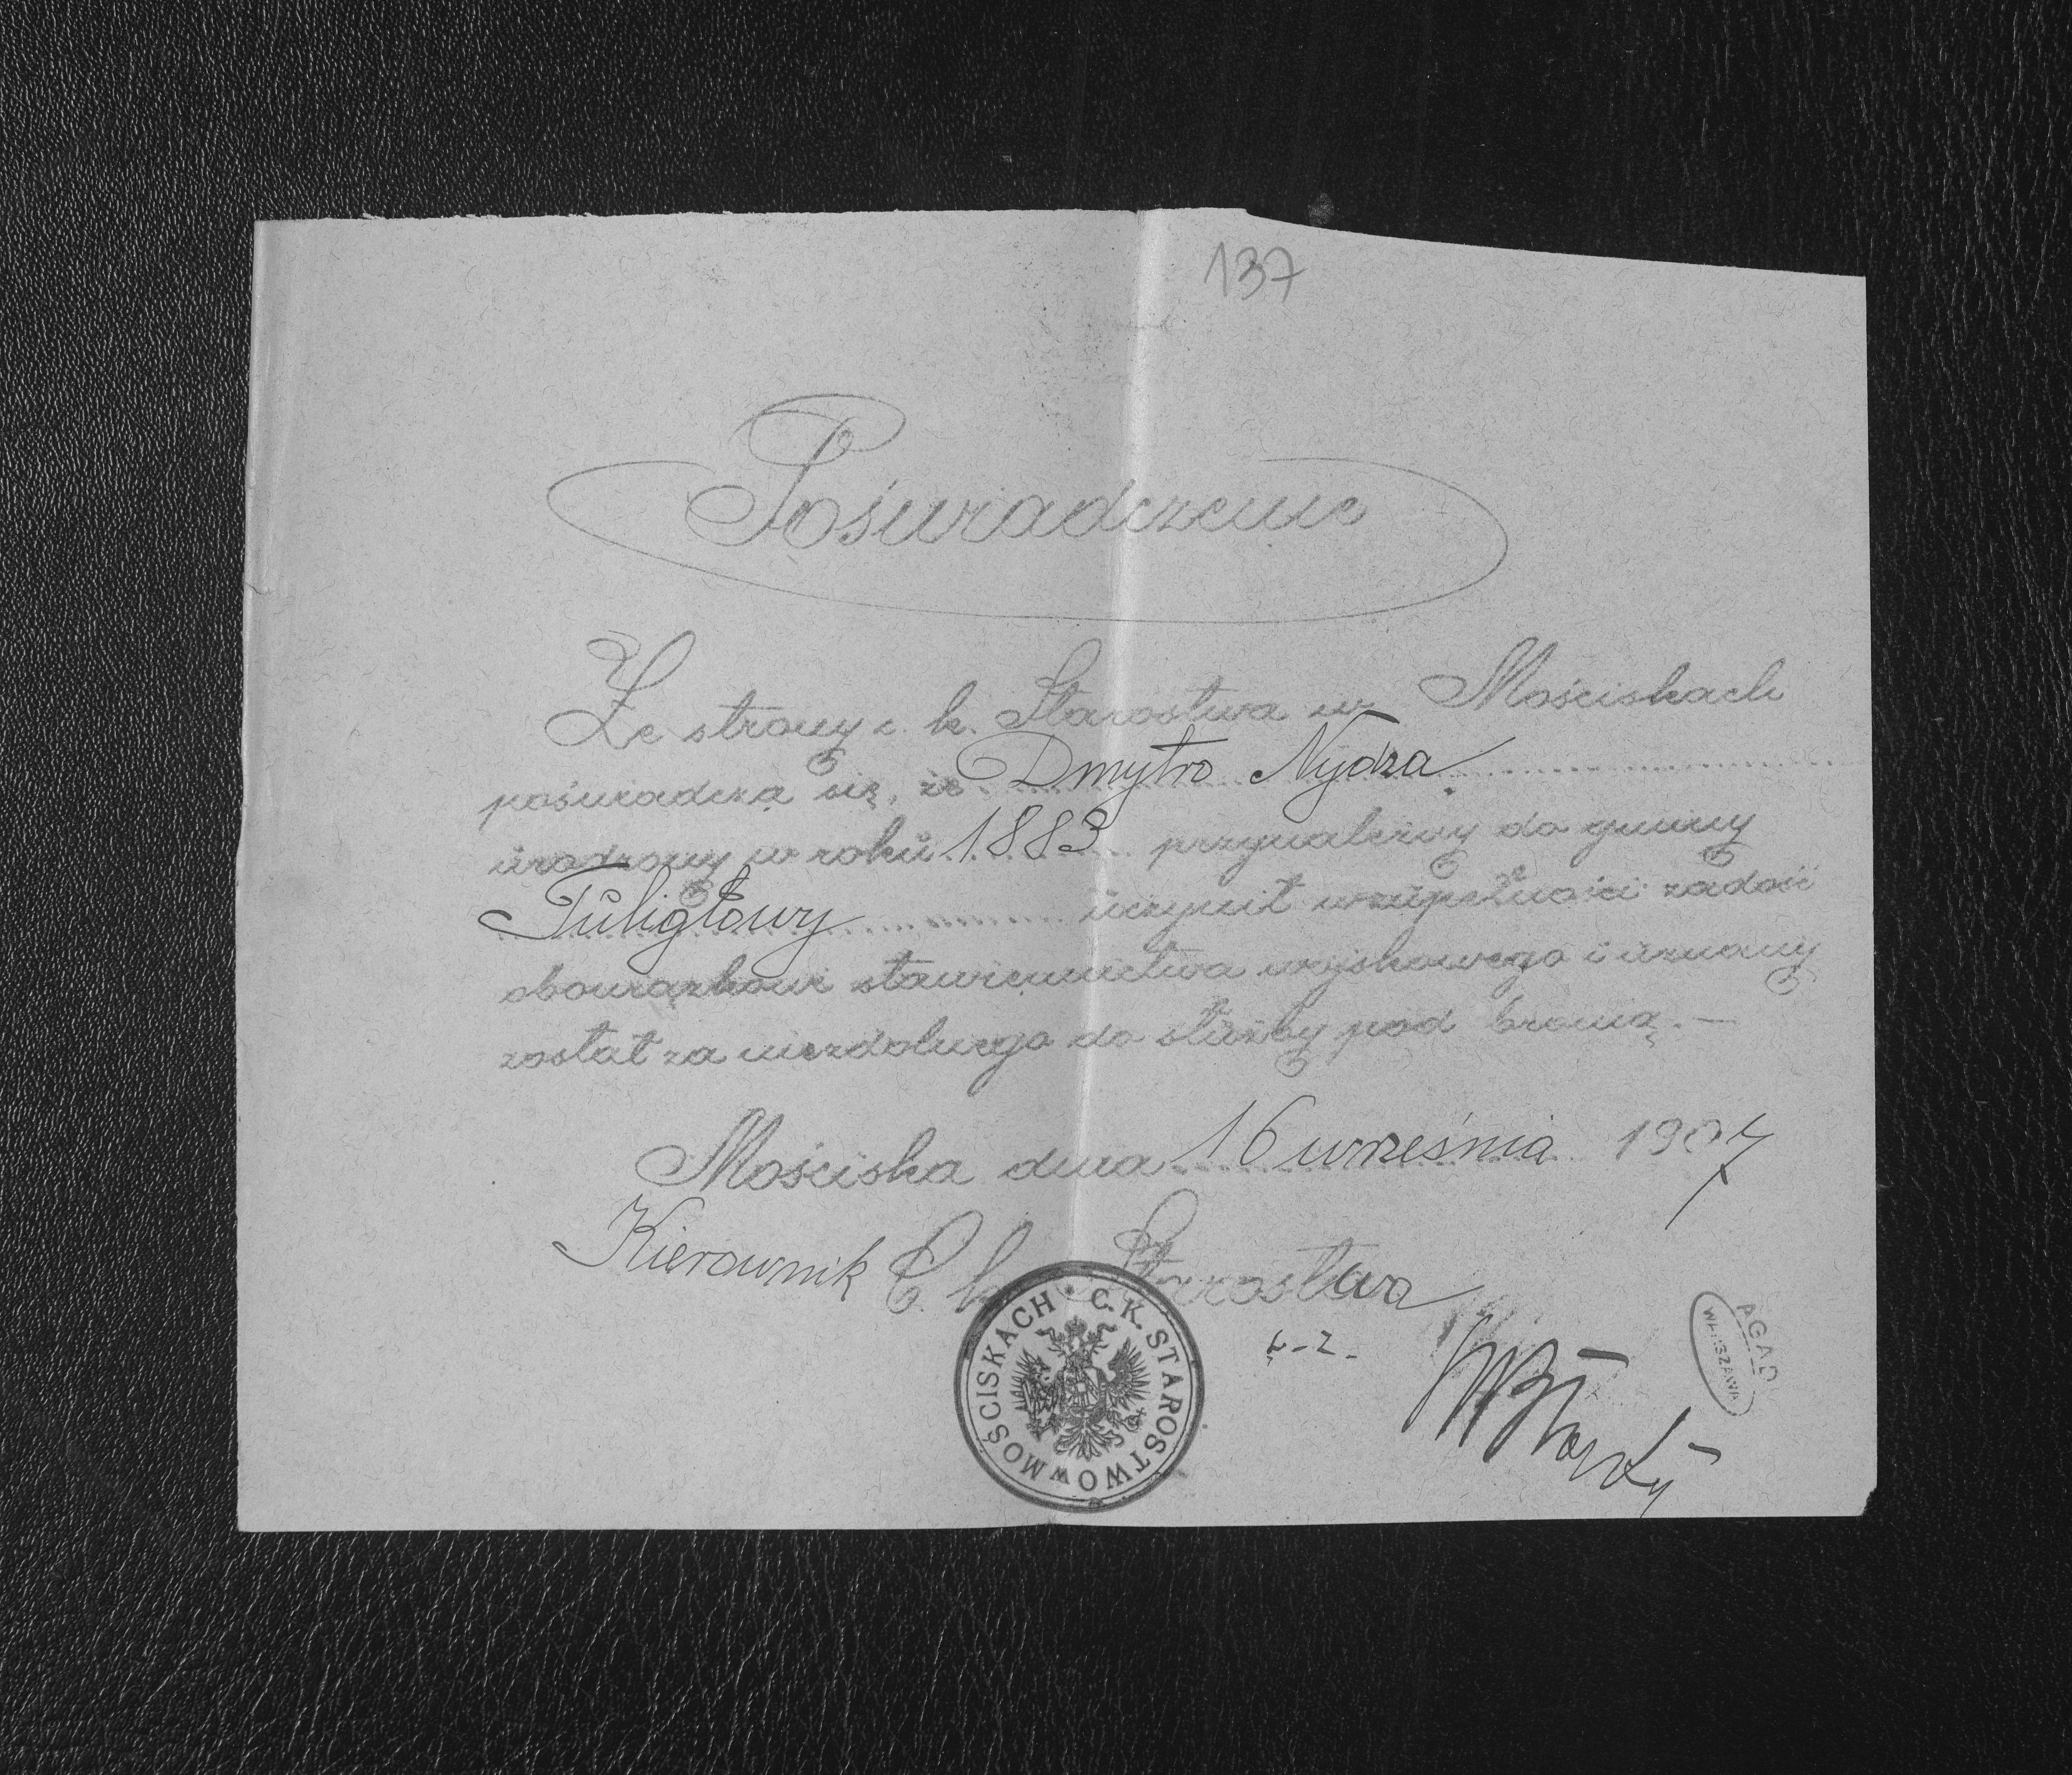 137
Poświadczenie
Ze strony c. k. Starostwa w Mościskach
poświadcza się, że Dmytro Nydza
urodzony w roku 1883 przynależny do gminy
Tuligłowy uczynił wzupełności zadość
obowiązkowi stawiennictwa wojskowego i uznany
został za niezdolnego do służby pod bronią.—
Mościska dnia 16 września 1907
Kierownik C. k. Starostwa
C. K. STAROSTWO W MOŚCISKACH
AGAD
WARSZAWA